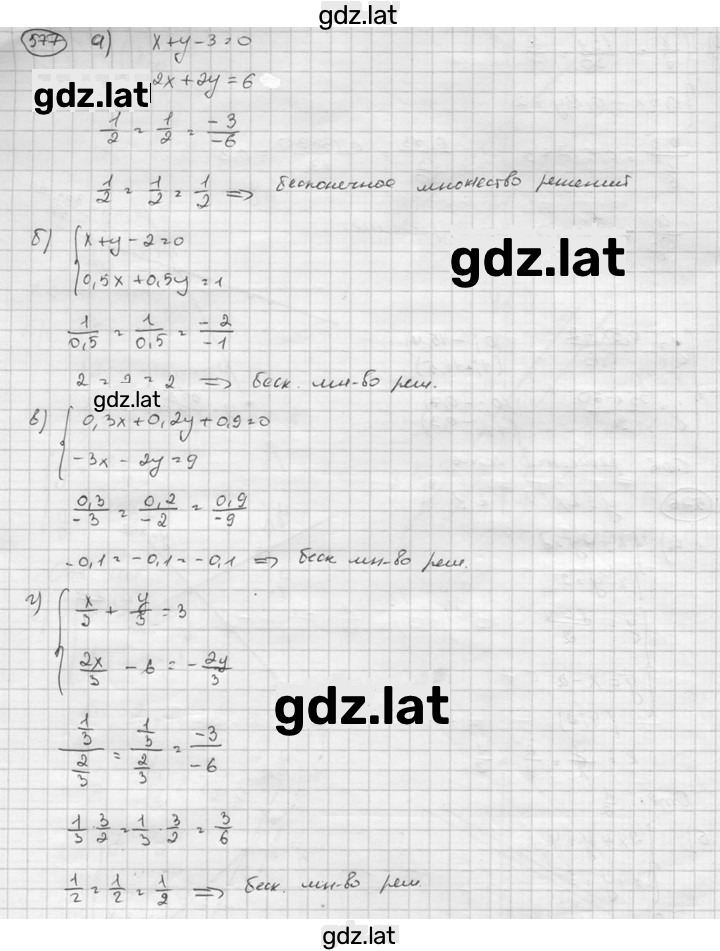 gdz.lat
577 а) x+y-3=0
gdz.lat 2x+2y=6
1/2 = 1/2 = -3/-6
1/2 = 1/2 = 1/2 => бесконечное множество решений
б) { x+y-2=0
gdz.lat
0,5x+0,5y=1
1/0,5 = 1/0,5 = -2/-1
2 = 2 = 2 => беск. мн-во реш.
gdz.lat
в) { 0,3x+0,2y+0,9=0
-3x-2y=9
0,3/-3 = 0,2/-2 = 0,9/-9
-0,1=-0,1=-0,1 => беск мн-во реш.
г) { x/3 + y/3 = 3
2x/3 - 6 = -2y/3
gdz.lat
1/3 / 2/3 = 1/3 / 2/3 = -3/-6
1/3 · 3/2 = 1/3 · 3/2 = 3/6
1/2 = 1/2 = 1/2 => беск. мн-во реш.
gdz.lat